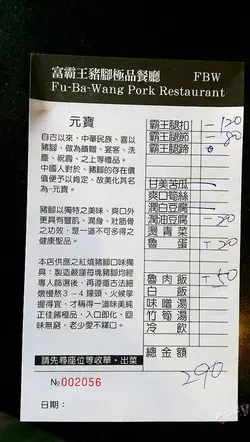 富霸王豬腳極品餐廳 FBW
Fu-Ba-Wang Pork Restaurant
元寶
自古以來、中華民族、喜以
豬腳、做為饋贈、宴客、洗
塵、祝壽、之上等禮品。
中國人對於、豬腳的存在價
值便予以肯定、故美化其名
為-元寶。
豬腳以獨特之美味、爽口外
更具有豐肌、潤身、壯筋骨
之功效、是一道不可多得之
健康聖品。
本店供應之紅燒豬腳口味獨
具：製造嚴謹每塊豬腳均經
專人篩選後，再遵循古法細
燉慢熬3－4鐘頭、火候掌
握得宜，才稱得一道味美純
正佳餚極品，入口即化、回
味無窮、老少愛不釋口。
請先尋座位等收單，出菜
No 002056
日期：
霸王腿扣 120
霸王腿節 80
霸王腿蹄
甘美苦瓜
爽口筍絲
潤白豆腐
潤油豆腐 20
燙青菜
魯蛋 20
魯肉飯 50
白飯
味噌湯
竹筍湯
冷飲
總金額
290